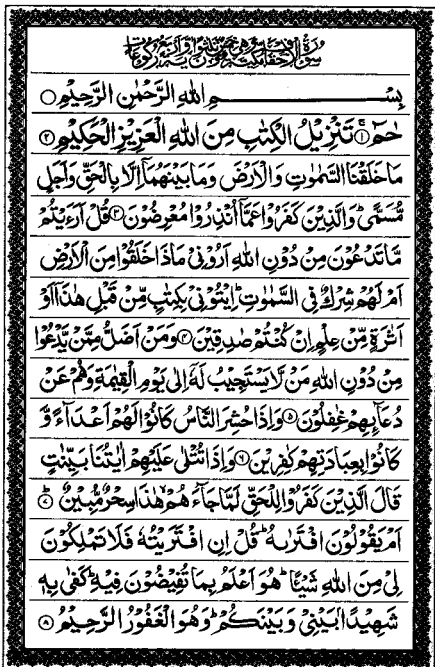 سورة الاحقاف مكية وهي خمس وثلثون اية واربع ركوعات
بِسْمِ اللهِ الرَّحْمٰنِ الرَّحِيْمِ ○
حٰمٓ ۚ① تَنْزِيْلُ الْكِتٰبِ مِنَ اللهِ الْعَزِيْزِ الْحَكِيْمِ ②
مَا خَلَقْنَا السَّمٰوٰتِ وَالْاَرْضَ وَمَا بَيْنَهُمَآ اِلَّا بِالْحَقِّ وَاَجَلٍ
مُّسَمًّى ؕ وَالَّذِيْنَ كَفَرُوْا عَمَّآ اُنْذِرُوْا مُعْرِضُوْنَ ③ قُلْ اَرَءَيْتُمْ
مَّا تَدْعُوْنَ مِنْ دُوْنِ اللهِ اَرُوْنِيْ مَاذَا خَلَقُوْا مِنَ الْاَرْضِ
اَمْ لَهُمْ شِرْكٌ فِي السَّمٰوٰتِ ؕ اِيْتُوْنِيْ بِكِتٰبٍ مِّنْ قَبْلِ هٰذَآ اَوْ
اَثٰرَةٍ مِّنْ عِلْمٍ اِنْ كُنْتُمْ صٰدِقِيْنَ ④ وَمَنْ اَضَلُّ مِمَّنْ يَّدْعُوْا
مِنْ دُوْنِ اللهِ مَنْ لَّا يَسْتَجِيْبُ لَهٗٓ اِلٰى يَوْمِ الْقِيٰمَةِ وَهُمْ عَنْ
دُعَآئِهِمْ غٰفِلُوْنَ ⑤ وَاِذَا حُشِرَ النَّاسُ كَانُوْا لَهُمْ اَعْدَآءً وَّ
كَانُوْا بِعِبَادَتِهِمْ كٰفِرِيْنَ ⑥ وَاِذَا تُتْلٰى عَلَيْهِمْ اٰيٰتُنَا بَيِّنٰتٍ
قَالَ الَّذِيْنَ كَفَرُوْا لِلْحَقِّ لَمَّا جَآءَهُمْ ۙ هٰذَا سِحْرٌ مُّبِيْنٌ ⑦ؕ
اَمْ يَقُوْلُوْنَ افْتَرٰىهُ ؕ قُلْ اِنِ افْتَرَيْتُهٗ فَلَا تَمْلِكُوْنَ
لِيْ مِنَ اللهِ شَيْئًا ؕ هُوَ اَعْلَمُ بِمَا تُفِيْضُوْنَ فِيْهِ ؕ كَفٰى بِهٖ
شَهِيْدًۢا بَيْنِيْ وَبَيْنَكُمْ ؕ وَهُوَ الْغَفُوْرُ الرَّحِيْمُ ⑧